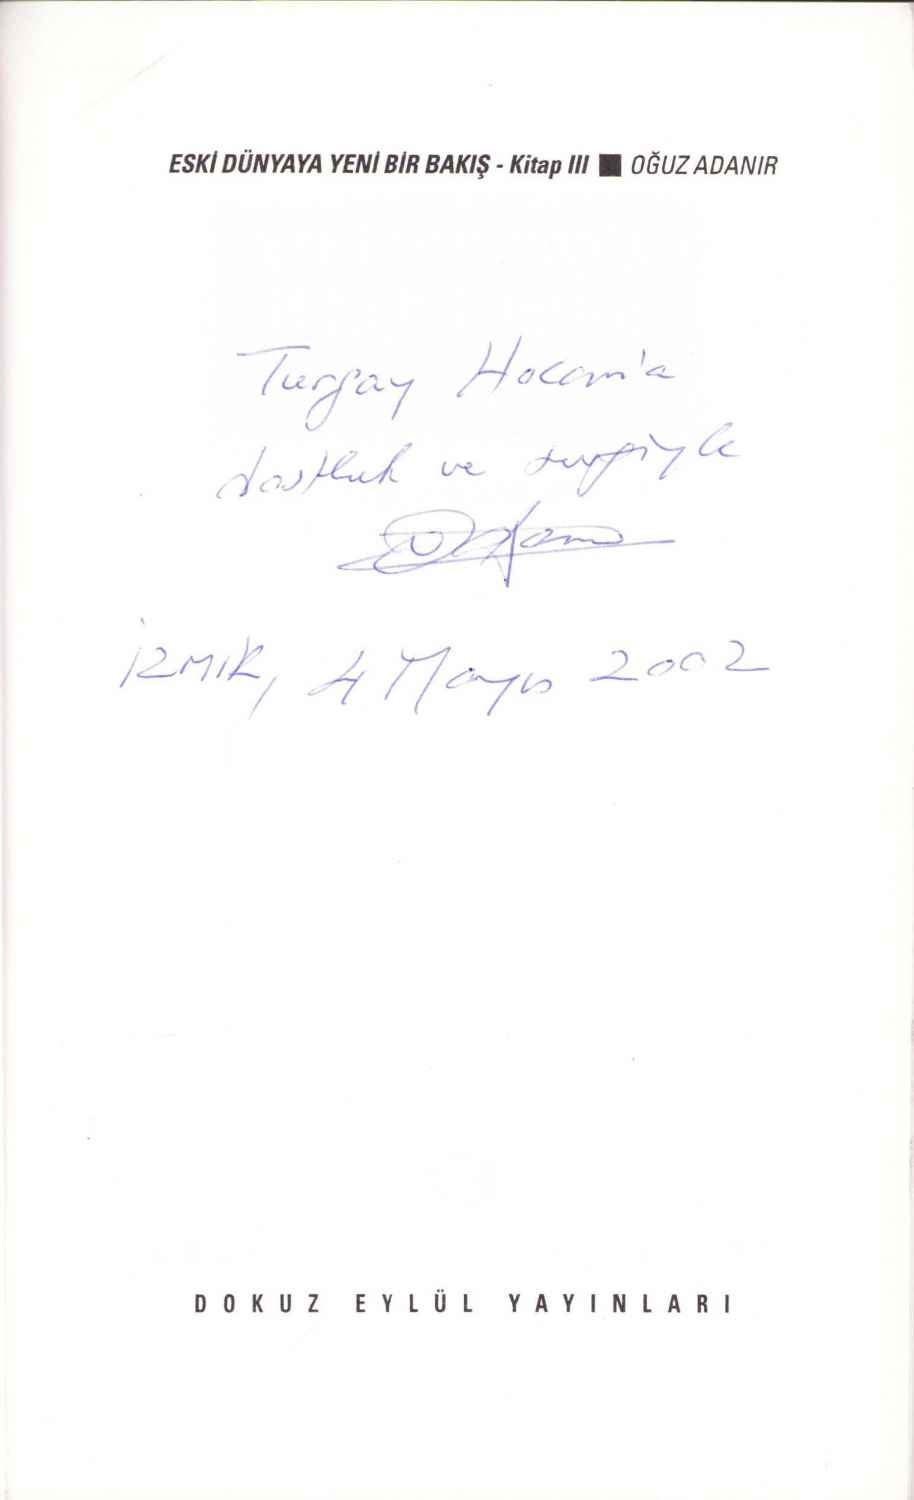 ESKİ DÜNYAYA YENİ BİR BAKIŞ - Kitap III ■ OĞUZ ADANIR
Turgay Hocam'a
dostluk ve sevgiyle
İZMİR, 4 Mayıs 2002
DOKUZ EYLÜL YAYINLARI